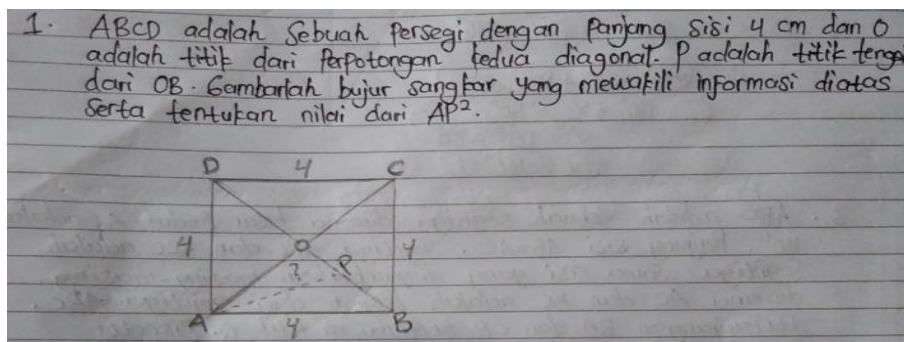 1. ABCD adalah Sebuah Persegi dengan Panjang sisi 4 cm dan O
adalah titik dari Perpotongan kedua diagonal. P adalah titik tenga
dari OB. Gambarlah bujur sangkar yang mewakili informasi diatas
Serta tentukan nilai dari AP².
D 4 C
4 O 4
? P
A 4 B